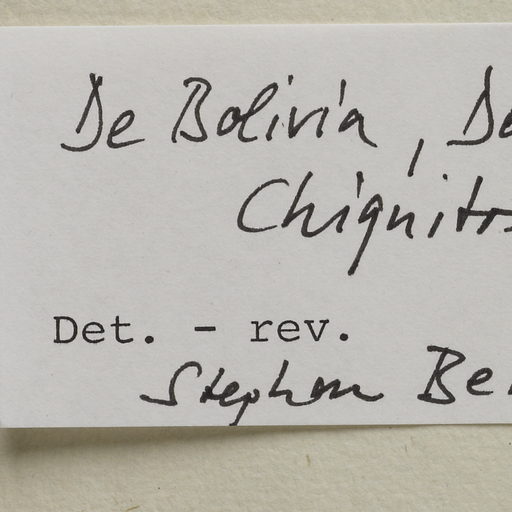 De Bolivia, De
Chiquitos
Det. - rev.
Stephan Be